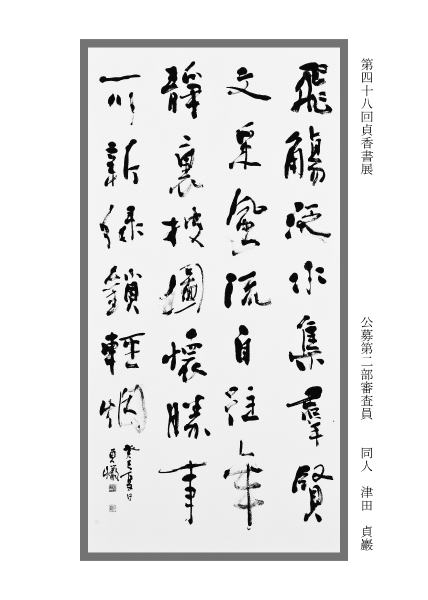 第四十八回貞香書展
公募第二部審査員 同人 津田 貞巖
飛觴泛水集羣賢
文采風流自往年
靜裏披圖懷勝事
一川新緑鎖輕烟
癸巳夏日
貞巖